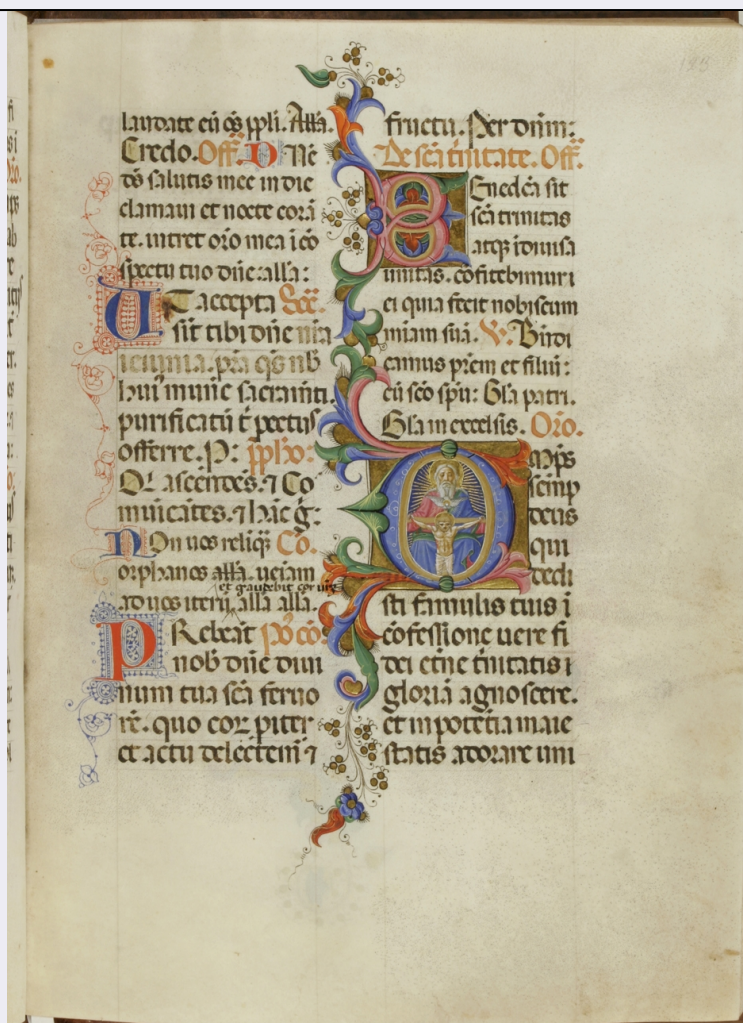 laudate eū oēs ppli. Alla.
Credo. Off. D Ne
ds̄ salutis mee in die
clamaui et nocte corā
te. intret oro mea i cō
spectu tuo dn̄e: alla:
UT accepta Sec.
sit tibi dn̄e nr̄a
ieiunia. pr̄a qs̄ nb̄
huiꝰ munic sacramti.
purificatū t̄ pectus
offerre. P: ppho:
Or ascentes. ⁊ Co
municātes. ⁊ hāc g:
NOn uos reliq Co.
orphanos alla. ueiam
et gaudebit cor ur̄e
ad uos iterū, alla alla.
PRebeāt pꝰcō.
nob̄ dn̄e diui
num tua sc̄a feruo
rē. quo eoꝝ piter
et actu delectem̄ ⁊
fructu. Per dnm:
De sc̄a tinitate. Off.
BEnedc̄a sit
sc̄a trinitas
atqꝫ idiuisa
unitas. cōfitebimur i
ei quia fecit nobiscum
miam suā. V. Bn̄di
camus prem et filiū:
cū sc̄o spū: Gl̄a patri.
Gl̄a in excelsis. Or̄o.
OMp̄s
semp
deus
qui
dedi
sti famulis tuis ī
cōfessione uere fi
dei et̄ne tnitatis ı
gloriā agnoscere.
et in potētia maie
statis adorare uni
123